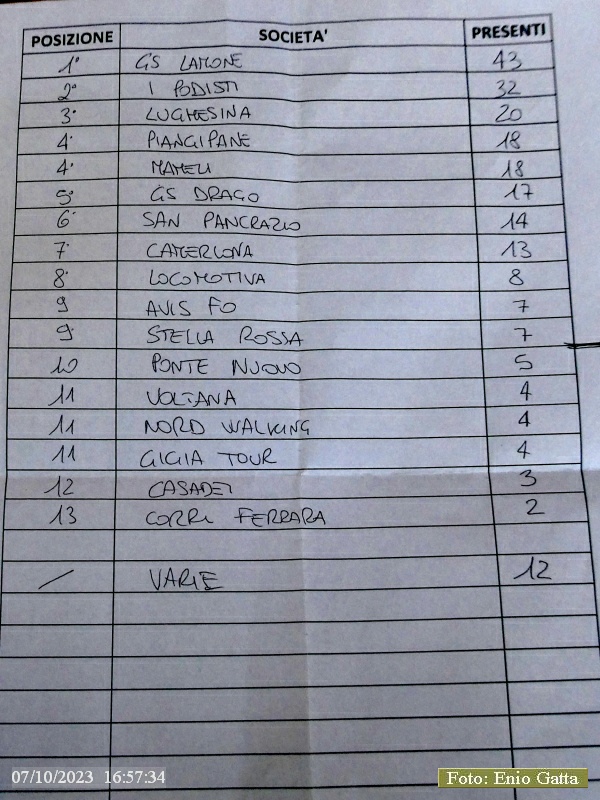 POSIZIONE SOCIETA' PRESENTI
1° GS LAMONE 43
2° I PODISTI 32
3° LUGHESINA 20
4° PIANGIPANE 18
4° MAMELI 18
5° GS DRAGO 17
6° SAN PANCRAZIO 14
7° CAMERLONA 13
8° LOCOMOTIVA 8
9 AVIS FO 7
9 STELLA ROSSA 7
10 PONTE NUOVO 5
11 VOLTANA 4
11 NORD WALKING 4
11 GIGIA TOUR 4
12 CASADEI 3
13 CORRI FERRARA 2
/ VARIE 12
07/10/2023 16:57:34
Foto: Enio Gatta